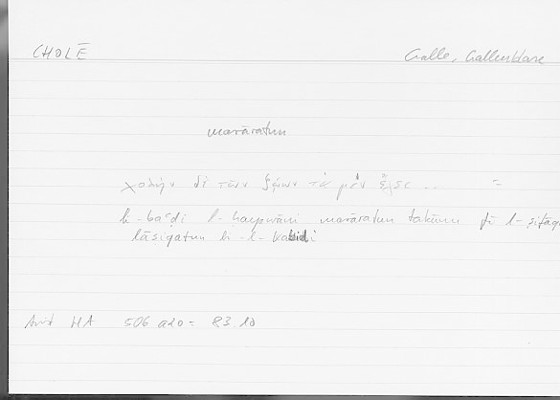 CHOLĒ
Galle, Gallenblase
marāratun
χολὴν δὲ τῶν ζῴων τὰ μὲν ἔχει .. =
li-baʿḍi l-ḥayawāni marāratun takūnu fī l-ṣifāqi
lāṣiqatun bi-l-kabidi
Arist HA 506 a20 = 83.10